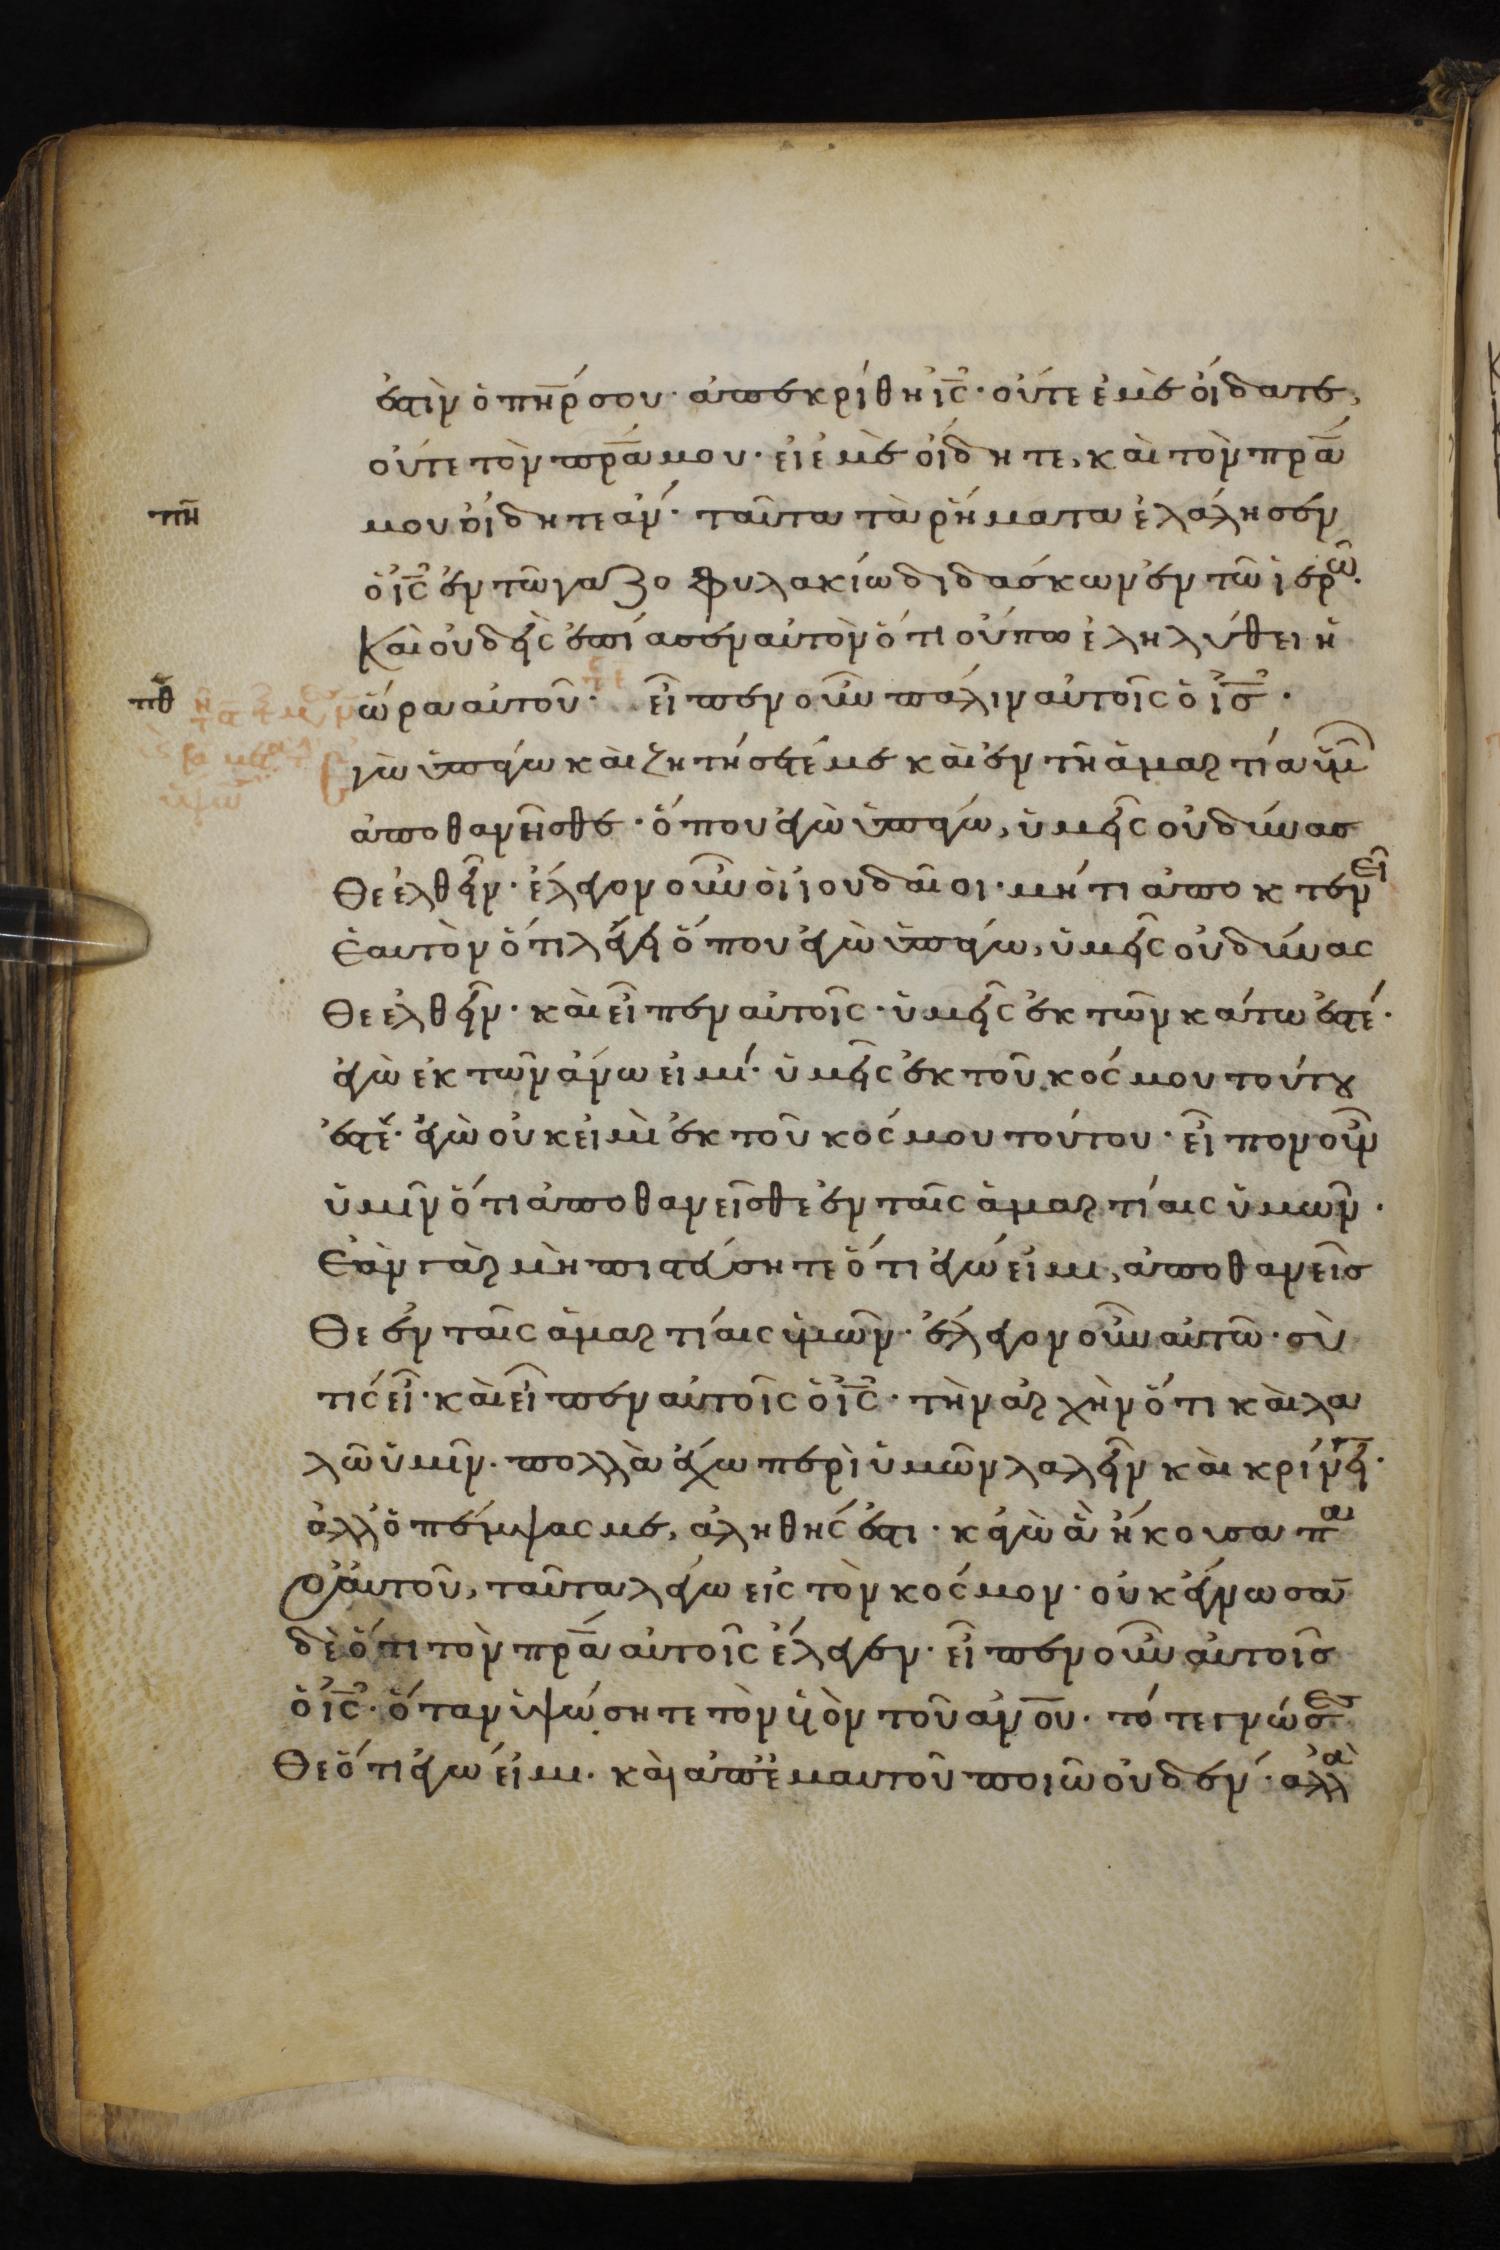 ἐστὶν ὁ πηρ σου· ἀπεκρίθη ις· οὔτε ἐμὲ οἴδατε,
οὔτε τὸν πρα μου· εἰ ἐμὲ οἴδητε, καὶ τὸν πρα
πη μου οἴδητε ἄν· ταῦτα τὰ ῥήματα ἐλάλησεν
ὁ ις ἐν τῶ γαζοφυλακίω διδάσκων ἐν τῶ ἱερῶ.
Καὶ οὐδεὶς ἐπίασεν αὐτὸν ὅτι οὔπω ἐληλύθει ἡ
πθ ὥρα αὐτοῦ· εἶπεν οὖν πάλιν αὐτοῖς ὁ ις·
ἐγὼ ὑπάγω καὶ ζητήσετέ με καὶ ἐν τῆ ἁμαρτία ὑμῶν
ἀποθανεῖσθε· ὅπου ἐγὼ ὑπάγω, ὑμεῖς οὐ δύνασ
θε ἐλθεῖν· ἔλεγον οὖν οἱ ἰουδαῖοι· μήτι ἀποκτενεῖ
ἑαυτὸν ὅτι λέγει ὅπου ἐγὼ ὑπάγω, ὑμεῖς οὐ δύνασ
θε ἐλθεῖν· καὶ εἶπεν αὐτοῖς· ὑμεῖς ἐκ τῶν κάτω ἐστέ·
ἐγὼ ἐκ τῶν ἄνω εἰμί· ὑμεῖς ἐκ τοῦ κόσμου τούτου
ἐστέ· ἐγὼ οὐκ εἰμὶ ἐκ τοῦ κόσμου τούτου· εἶπον οὖν
ὑμῖν ὅτι ἀποθανεῖσθε ἐν ταῖς ἁμαρτίαις ὑμῶν·
Ἐὰν γὰρ μὴ πιστεύσητε ὅτι ἐγώ εἰμι, ἀποθανεῖσ
θε ἐν ταῖς ἁμαρτίαις ὑμῶν· ἔλεγον οὖν αὐτῶ· σὺ
τίς εἶ· καὶ εἶπεν αὐτοῖς ὁ ις· τὴν ἀρχὴν ὅτι καὶ λα
λῶ ὑμῖν· πολλὰ ἔχω περὶ ὑμῶν λαλεῖν καὶ κρίνειν·
ἀλλ' ὁ πέμψας με, ἀληθής ἐστι· κἀγὼ ἃ ἤκουσα πα
ρ' αὐτοῦ, ταῦτα λέγω εἰς τὸν κόσμον· οὐκ ἔγνωσαν
δὲ ὅτι τὸν πρα αὐτοῖς ἔλεγεν· εἶπεν οὖν αὐτοῖς
ὁ ις· ὅταν ὑψώσητε τὸν υἱὸν τοῦ ανου· τότε γνώσεσ
θε ὅτι ἐγώ εἰμι· καὶ ἀπ' ἐμαυτοῦ ποιῶ οὐδέν· ἀλλὰ